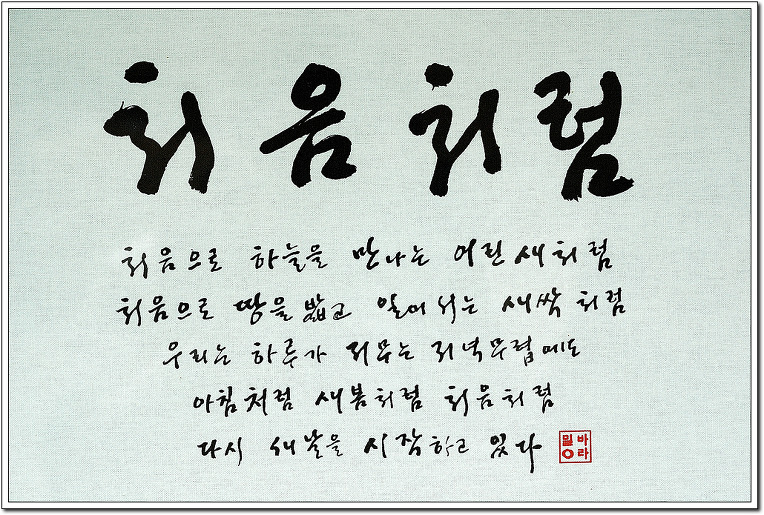 처음처럼
처음으로 하늘을 만나는 어린 새처럼
처음으로 땅을 밟고 일어서는 새싹처럼
우리는 하루가 저무는 저녁무렵에도
아침처럼 새봄처럼 처음처럼
다시 새날을 시작하고 있다
바라밀